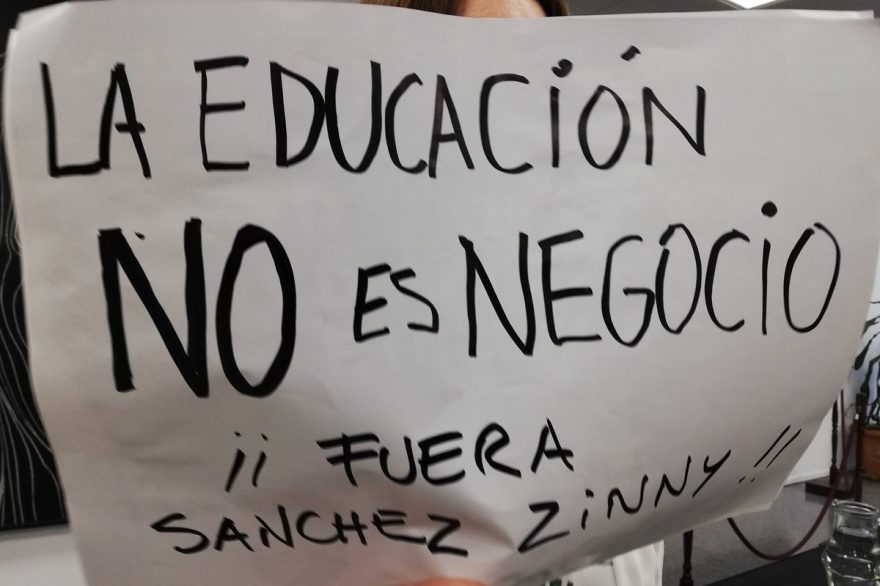 LA EDUCACIÓN
NO ES NEGOCIO
¡¡ FUERA
SANCHEZ ZINNY!!